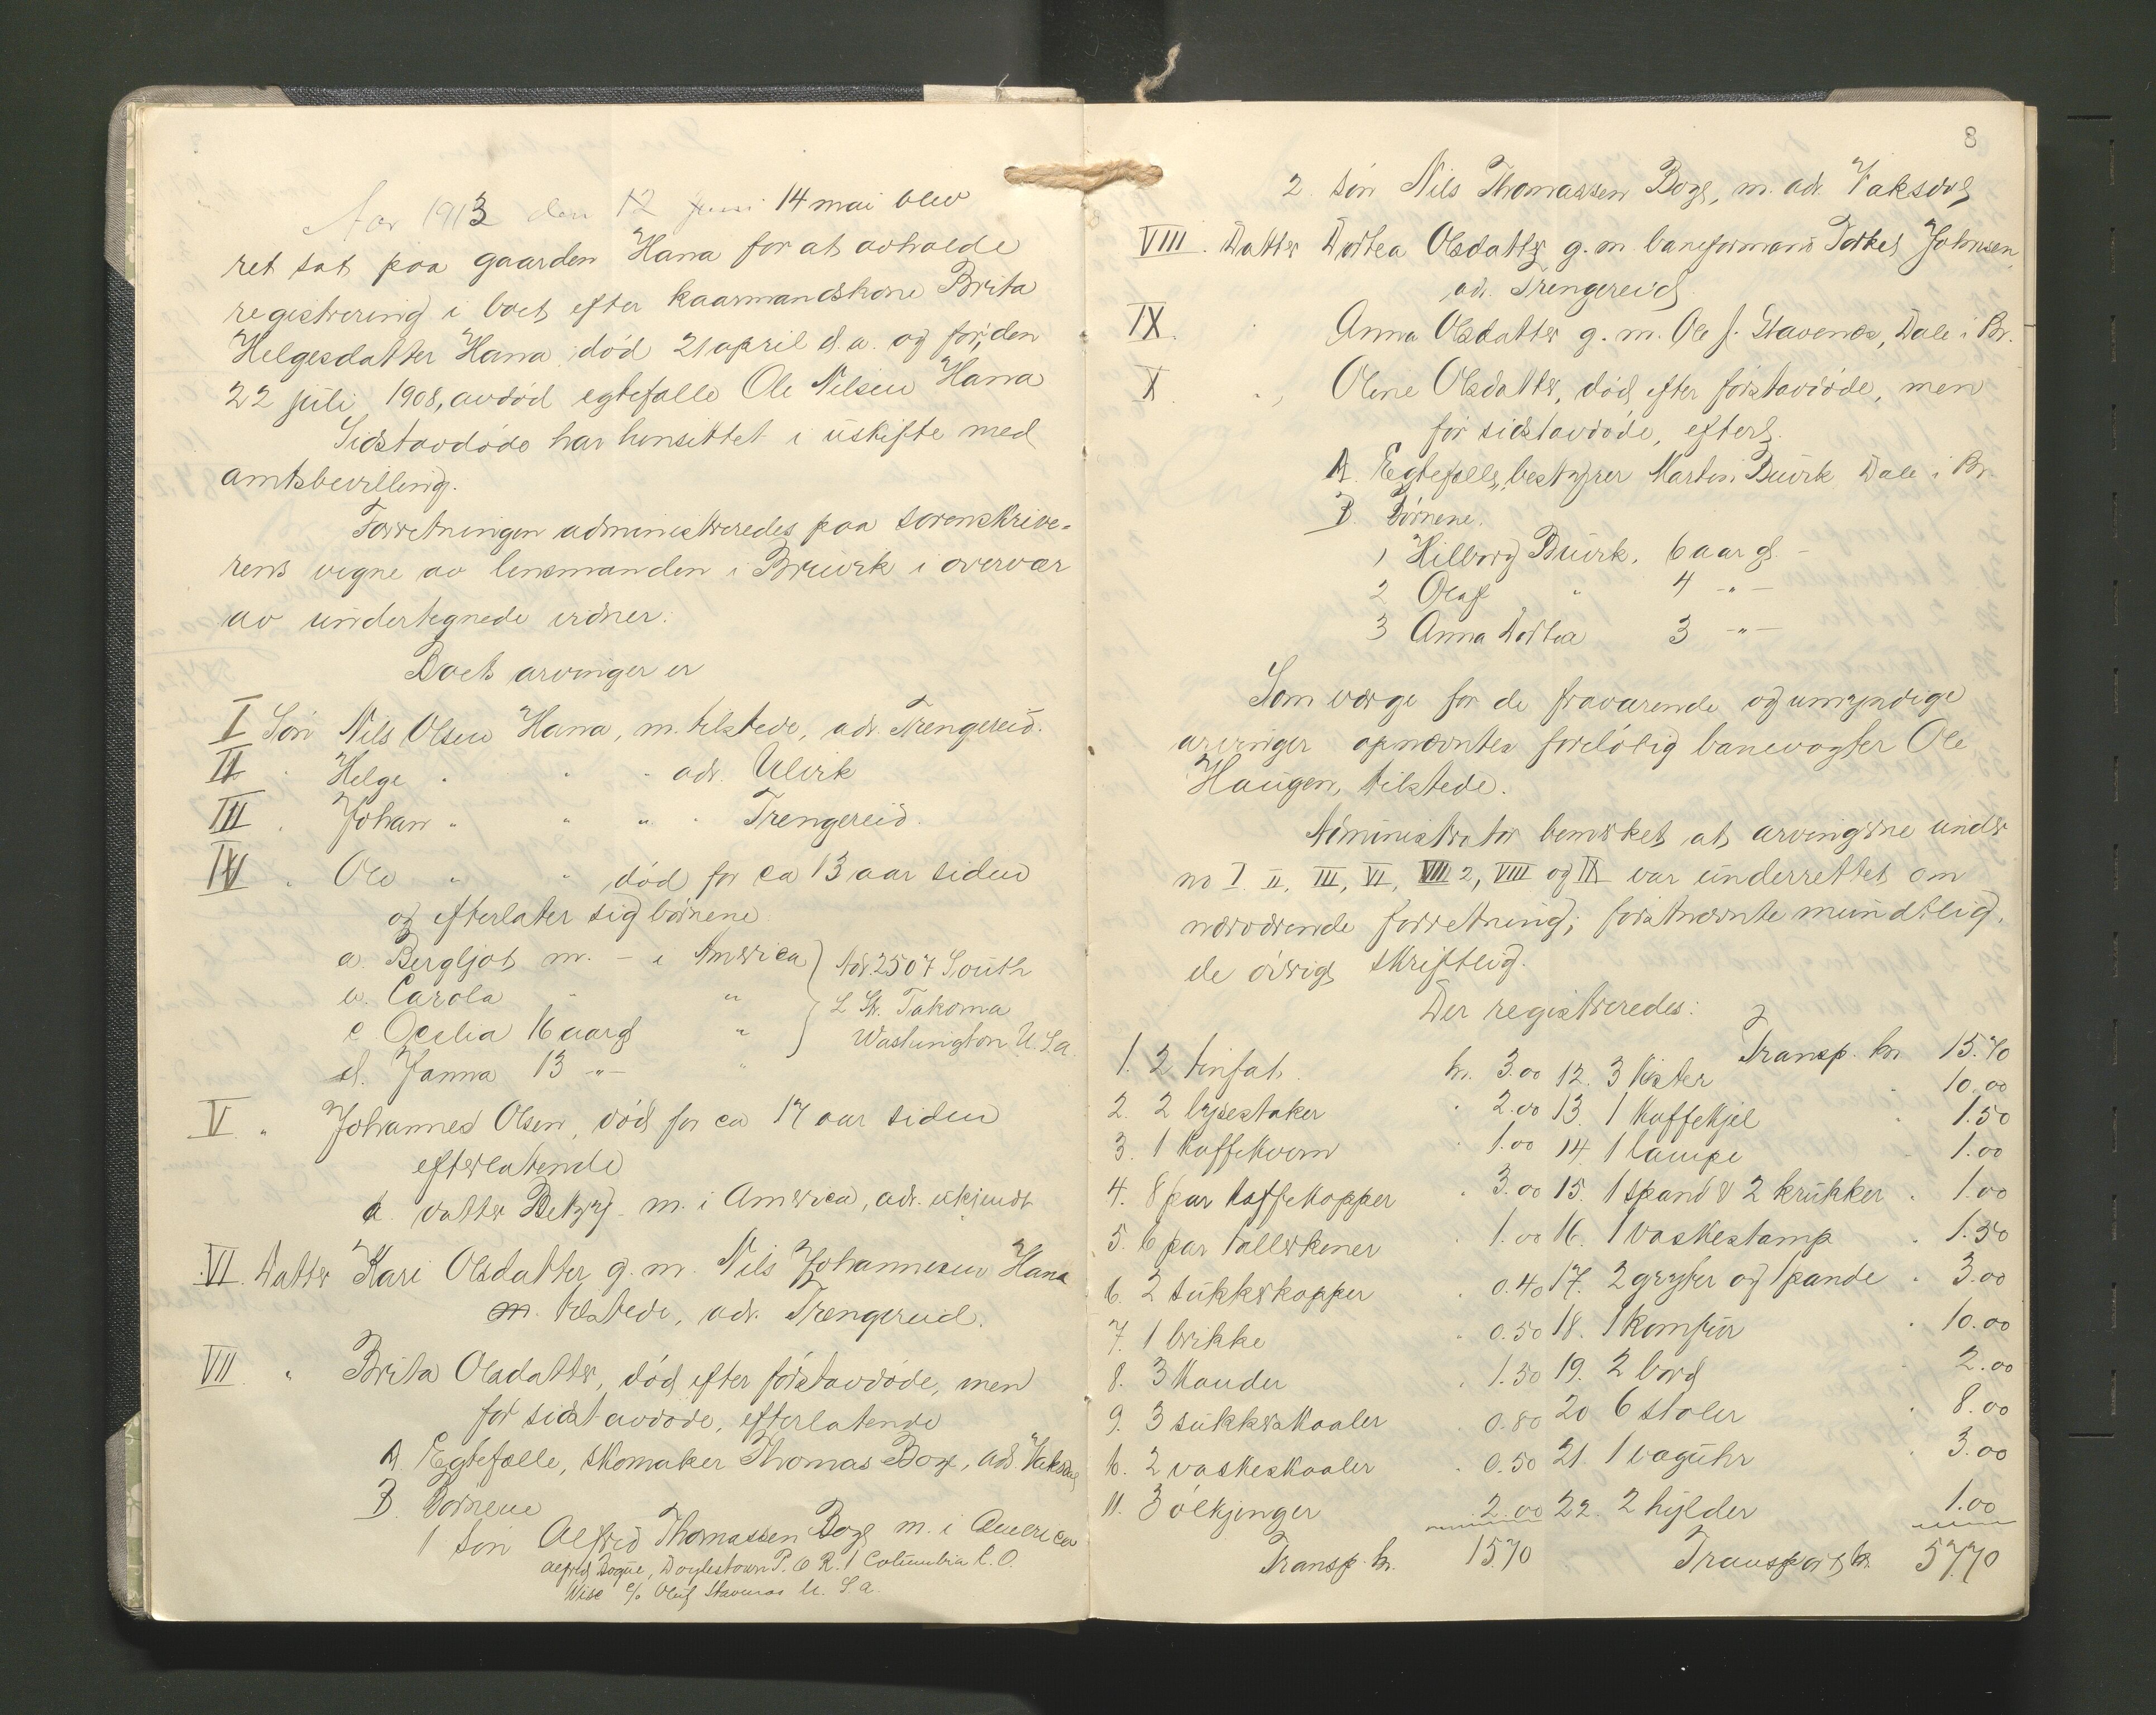 Aar 1913 den 12 juni 14 mai blev
ret sat paa gaarden Hana for at avholde
registrering i boet efter kaarmandskone Brita
Helgesdatter Hana død 21 april d.a. og for den
22 juli 1908, avdød egtefælle Ole Nilsen Hana
Sidstavdøde har hensittet i uskifte med
amtsbevilling.
Forretningen administreredes paa sorenskrive-
rens vegne av lensmanden i Bruvik i overvær
av undertegnede vidner:
Boets arvinger er
I Søn Nils Olsen Hana, m. tilstede, adr. Trengereid.
II " Helge " " " adr. Ulvik
III " Johan " " " " Trengereid.
IV " Ole " " død for ca 13 aar siden
og efterlater sig børnene:
a. Bergljot m. - i America
Adr. 2507 South
b. Carola " "
L St. Takoma
c Ocelia 16 aar gl "
Washington U.S.a.
d. Janna 13 -"- "
V. " Johannes Olsen, død for ca 17 aar siden
efterlatende
a. datter Betzy m. i America, adr. ukjendt
VI. Datter Kari Olsdatter g. m. Nils Johannesen Hana
m. tilstede, adr. Trengereid.
VII. " Brita Olsdatter, død efter førstavdøde, men
før sidstavdøde, efterlatende
A Egtefælle, skomaker Thomas Boge, adr. Vaksdal
B. Børnene
1 Søn Alfred Thomassen Boge m. i America
Alfred Bogue, Doylestown P. O R. 1 Columbia C. O.
Wisc c/o Oluf Stavenes U. S. a.
8
2. Søn Nils Thomassen Boge, m. adr. Vaksdal
VIII. Datter Dortea Olsdatter g. m. baneformand Torkel Johnsen,
adr. Trengereid
IX. " Anna Olsdatter g. m. Ole J. Stavenes, Dale i Br.
X. " Oline Olsdatter, død efter førstavdøde, men
før sidstavdøde, efterl.
A. Egtefælle, bestyrer Martin Buvik Dale i Br.
B. Børnene.
1 Hilborg Buvik. 6 aar gl. -
2 Olaf " 4 -"-
3 Anna Dortea 3 -"-
Som værge for de fraværende og umyndige
arvinger opnævntes foreløbig banevogter Ole
Haugen, tilstede.
Administrator bemerket at arvingerne under
no I. II, III, VI, VII 2, VIII og IX var underrettet om
nærværende forretning; førstnævnte mundtlig,
de øvrige skriftlig.
Der registreredes:
Transp. kr 15.70
1. 2 tinfat. kr. 3.00
12. 3 kister " 10.00
2. 2 lysestaker " 2.00
13. 1 kaffekjel " 1.50
3. 1 kaffekvern " 1.00
14. 1 lampe " 1.00
4. 8 par kaffekopper " 3.00
15. 1 spand & 2 krukker " 1.00
5. 6 par tallerkener " 1.00
16. 1 vaskestamp " 1.50
6. 2 sukkerkopper " 0.40
17. 2 gryter og 1 pande " 3.00
7. 1 brikke " 0.50
18. 1 komfur " 10.00
8. 3 kander " 1.50
19. 2 bord " 2.00
9. 3 sukkerskaaler " 0.80
20 6 stoler " 8.00
10. 2 vaskeskaaler " 0.50
21. 1 væguhr " 3.00
11. 3 ølkjenger 2.00
22. 2 hylder 1.00
Transp. kr. 15.70
Transport kr. 57.70